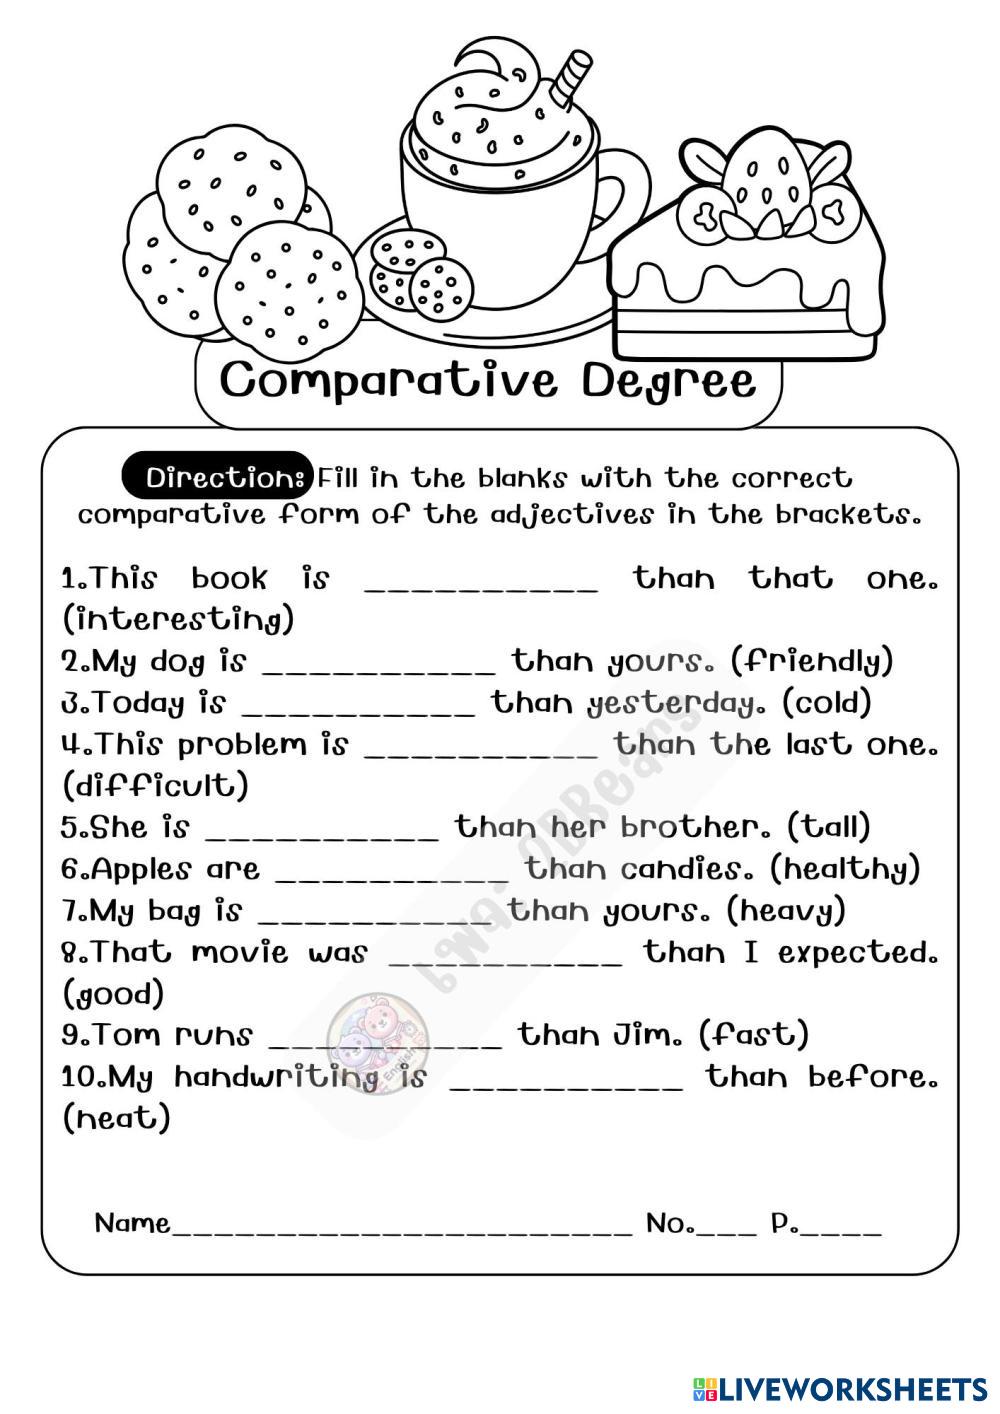 Comparative Degree
Direction: Fill in the blanks with the correct
comparative form of the adjectives in the brackets.
1.This book is __________ than that one.
(interesting)
2.My dog is __________ than yours. (friendly)
3.Today is __________ than yesterday. (cold)
4.This problem is __________ than the last one.
(difficult)
5.She is __________ than her brother. (tall)
6.Apples are __________ than candies. (healthy)
7.My bag is __________ than yours. (heavy)
8.That movie was __________ than I expected.
(good)
9.Tom runs __________ than Jim. (fast)
10.My handwriting is __________ than before.
(neat)
เพจ: QBBears
English
Name______________________ No.___ P.____
LIVEWORKSHEETS